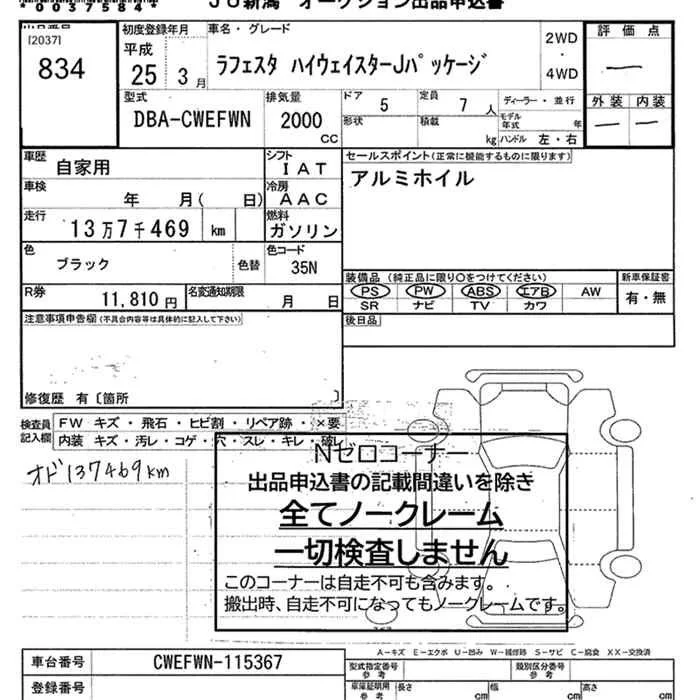 *0037584*
JU新潟 オークション出品申込書
[2037]
834
初度登録年月
平成
25 3月
車名・グレード
ラフェスタ ハイウェイスターJパッケージ
2WD
・
4WD
評価点
―
外装 内装
― ―
型式
DBA-CWEFWN
排気量
2000
cc
ドア 5
定員 7人
形状
積載 kg
ディーラー・並行
モデル年式 年
ハンドル 左・右
車歴
自家用
シフト
IAT
車検
年 月( 日)
冷房
AAC
走行
13万7千469 km
燃料
ガソリン
色
ブラック
色替
色コード
35N
R券
11,810円
名変通知期限
月 日
セールスポイント(正常に機能するものに限ります)
アルミホイル
装備品(純正品に限り○をつけてください)
PS PW ABS エアB AW
SR ナビ TV カワ
新車保証書
有・無
後日品
注意事項申告欄(不具合内容等は具体的に記入して下さい)
修復歴 有〔箇所 〕
検査員
記入欄
FW キズ・飛石・ヒビ割・リペア跡・×要
内装 キズ・汚レ・コゲ・穴・スレ・キレ・破レ
オド137469km
Nゼロコーナー
出品申込書の記載間違いを除き
全てノークレーム
一切検査しません
このコーナーは自走不可も含みます。
搬出時、自走不可になってもノークレームです。
A-キズ E-エクボ U-凹み W-補修跡 S-サビ C-腐食 XX-交換済
車台番号
CWEFWN-115367
登録番号
型式指定番号
参考
類別区分番号
参考
車庫証明用
参考
長さ cm
幅 cm
高さ cm